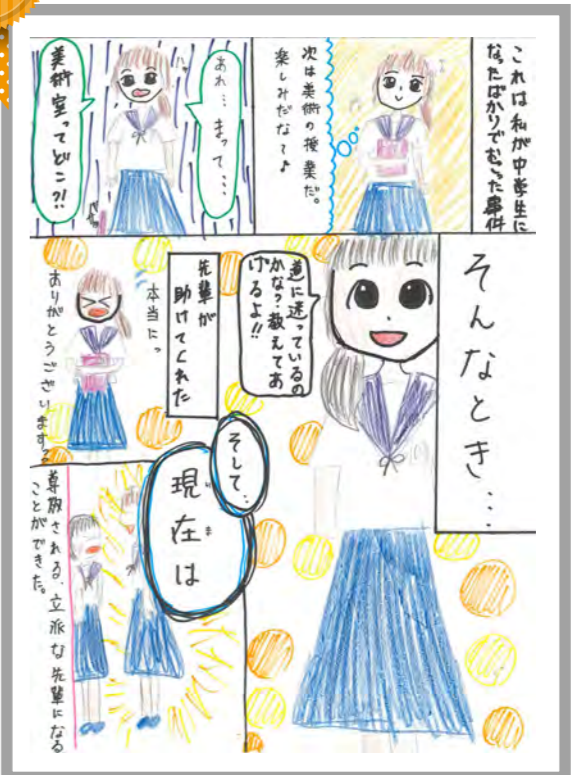 これは私が中学生に
なったばかりでむかった事件
次は美術の授業だ。
楽しみだな～♪
あれ…まって…
美術室ってどこ?!
そんなとき…
道に迷っているの
かな?教えてあ
げるよ!!
先輩が
助けてくれた
本当にっ
ありがとうございます
そして…
現在は
いま
尊敬される、立派な先輩になる
ことができた。